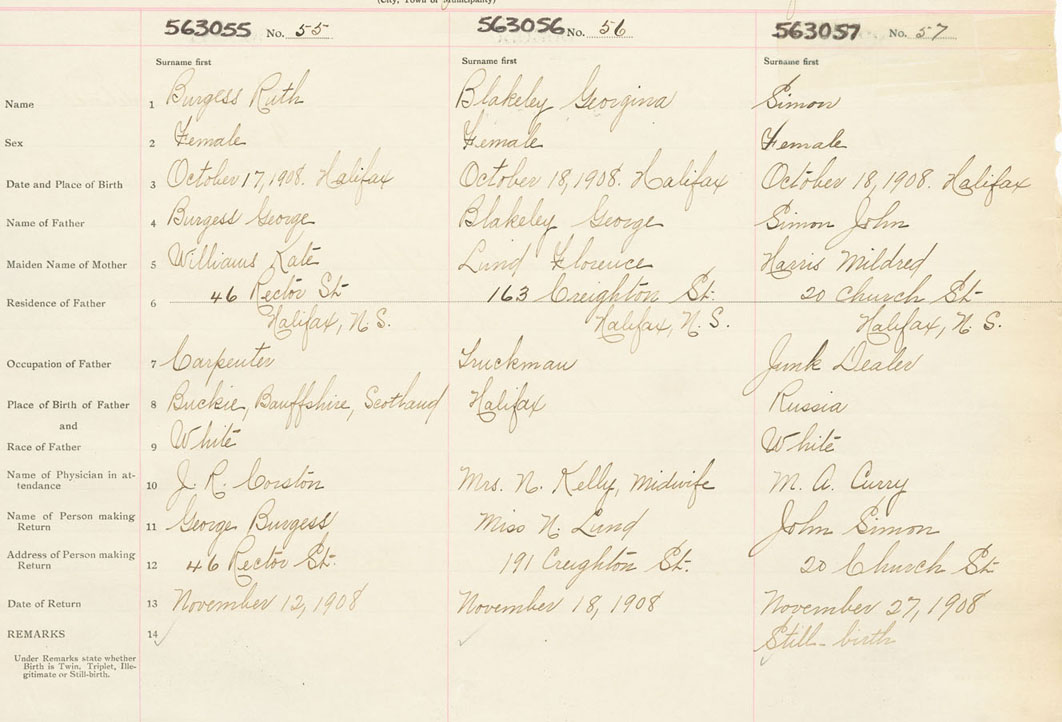 (City, Town or Municipality)
563055 No. 55 563056 No. 56 563057 No. 57
Surname first Surname first Surname first
Name 1 Burgess Ruth Blakeley Georgina Simon
Sex 2 Female Female Female
Date and Place of Birth 3 October 17, 1908. Halifax October 18, 1908. Halifax October 18, 1908. Halifax
Name of Father 4 Burgess George Blakeley George Simon John
Maiden Name of Mother 5 Williams Kate Lund Florence Harris Mildred
Residence of Father 6 46 Rector St. 163 Creighton St. 20 Church St.
Halifax, N. S. Halifax, N. S. Halifax, N. S.
Occupation of Father 7 Carpenter Truckman Junk Dealer
Place of Birth of Father 8 Buckie, Banffshire, Scotland Halifax Russia
and
Race of Father 9 White White
Name of Physician in at-
tendance 10 J. R. Corston Mrs. N. Kelly, Midwife M. A. Curry
Name of Person making
Return 11 George Burgess Miss N. Lund John Simon
Address of Person making
Return 12 46 Rector St. 191 Creighton St. 20 Church St.
Date of Return 13 November 12, 1908 November 18, 1908 November 27, 1908
REMARKS 14 Still-birth
Under Remarks state whether
Birth is Twin, Triplet, Ille-
gitimate or Still-birth.